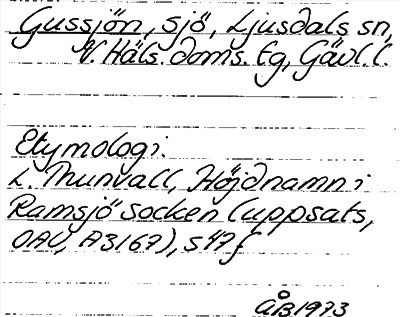 Gussjön, sjö, Ljusdals sn,
V. Häls. doms. Eg, Gävl. l.
Etymologi.
L. Munvall, Höjdnamn i
Ramsjö socken (uppsats,
OAU, A3167), s 47 f
ÅB 1973